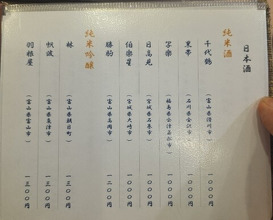 日本酒
純米酒
千代鶴 (富山県滑川市) 一〇〇〇円
黒帯 (石川県金沢市) 一〇〇〇円
写楽 (福島県会津若松市) 一〇〇〇円
日高見 (宮城県石巻市) 一〇〇〇円
伯楽星 (宮城県大崎市) 一〇〇〇円
勝駒 (富山県高岡市) 一二〇〇円
純米吟醸
林 (富山県朝日町) 一三〇〇円
帆波 (富山県魚津市) 一三〇〇円
羽根屋 (富山県富山市) 一三〇〇円